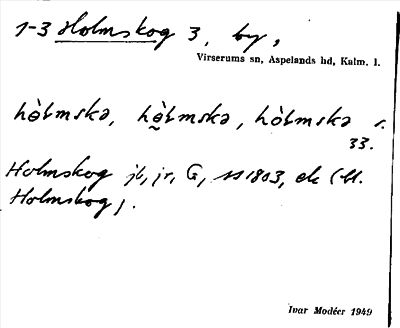 1-3 Holmskog 3, by,
Virserums sn, Aspelands hd, Kalm. l.
hòłmskə, hò̰łmskə, hòłmskə s.
33.
Holmskog jb, jr, G, ss 1803, ek (ll.
Holmskog).
Ivar Modéer 1949